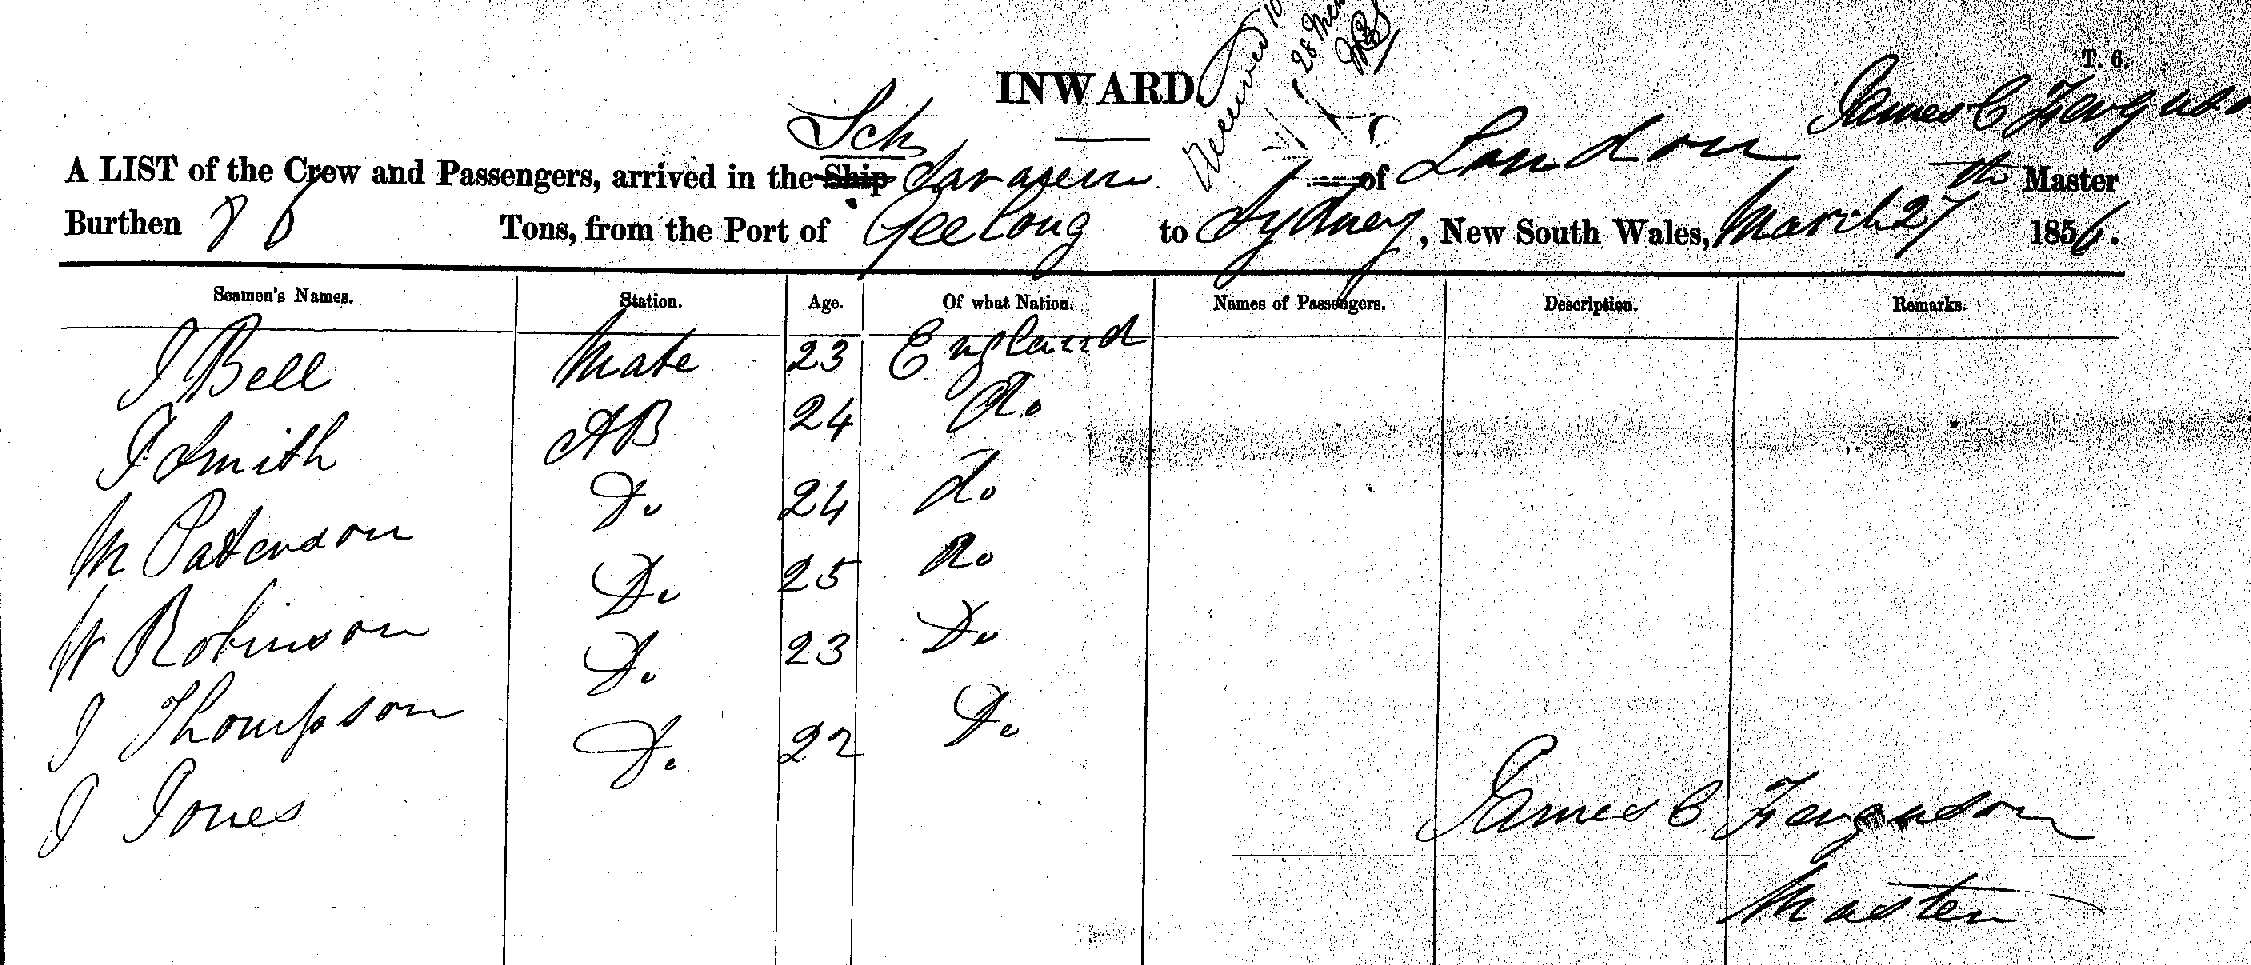 T. 6.
INWARD.
Received 10
28 Mar
A LIST of the Crew and Passengers, arrived in the Ship Sch Saracen of London James C Ferguson Master
Burthen Tons, from the Port of Geelong to Sydney, New South Wales, March 27th 1856.
Seamen's Names. Station. Age. Of what Nation. Names of Passengers. Description. Remarks.
J Bell Mate 23 England
J Smith AB 24 Do
M Patterson Do 24 do
W Robinson Do 25 Do
J Thompson Do 23 Do
J Jones Do 22 Do
James C Ferguson
Master